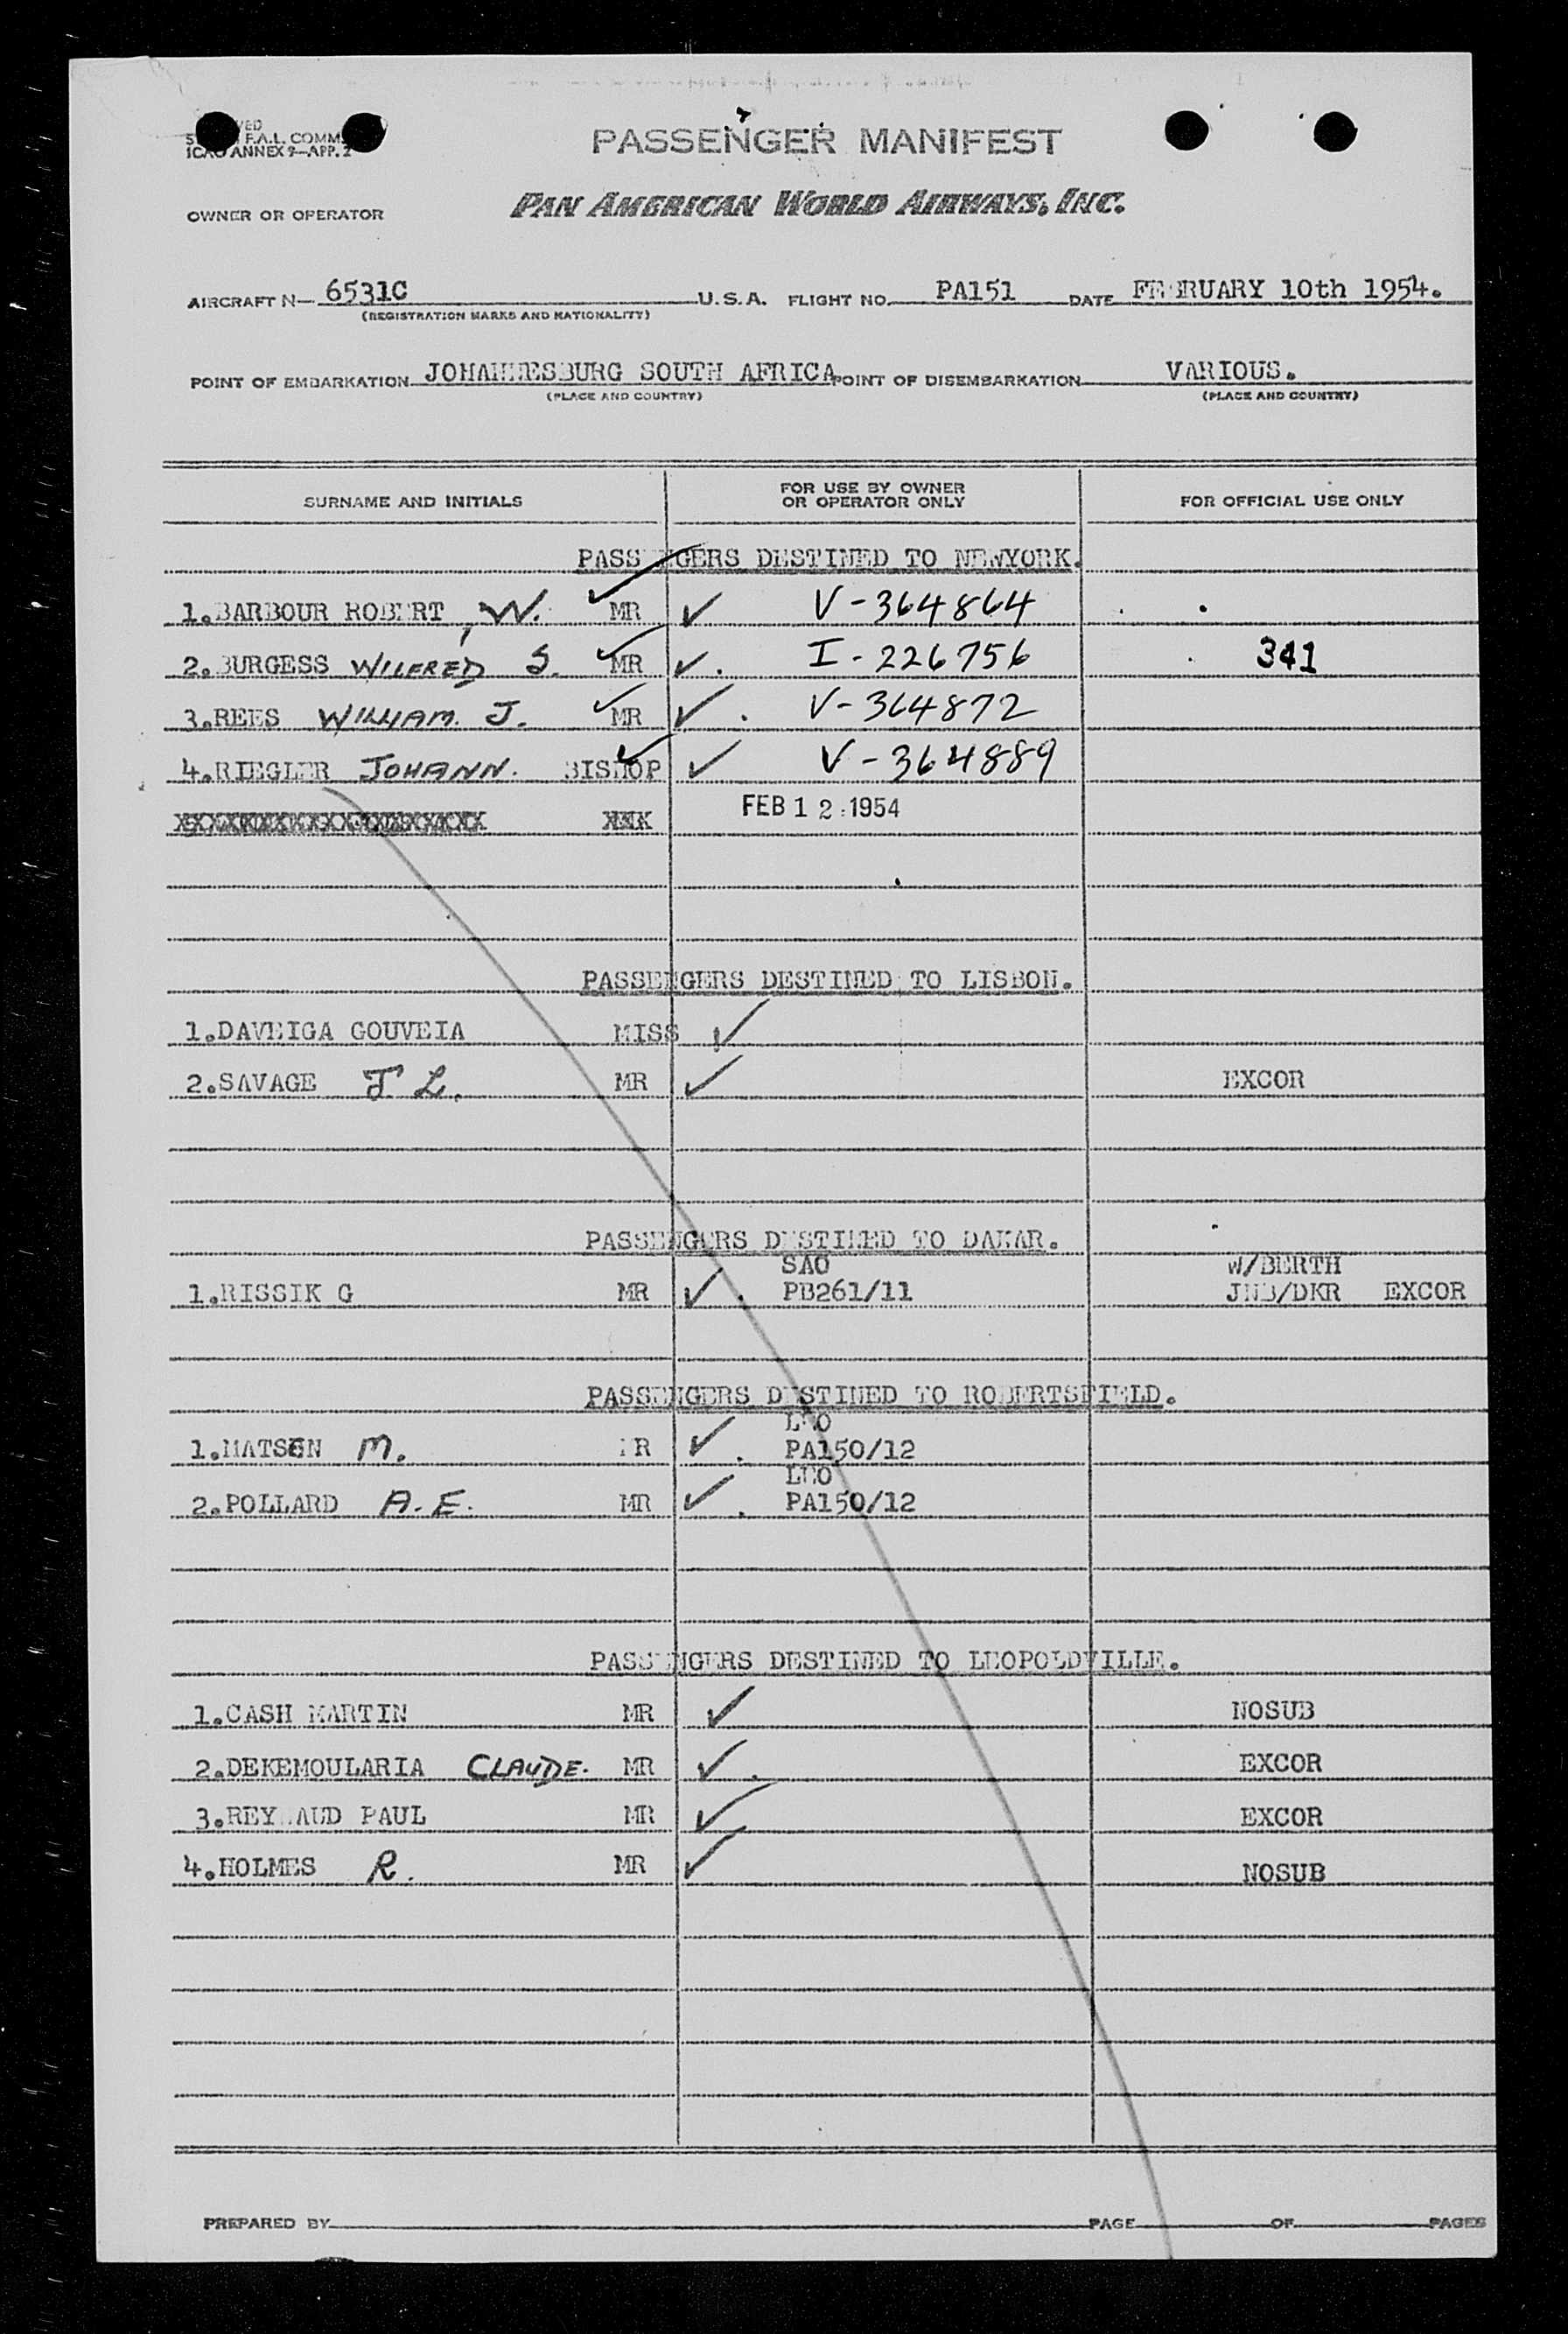 F.A.L. COMM.
ICAO ANNEX 9—APP. 2
PASSENGER MANIFEST
OWNER OR OPERATOR PAN AMERICAN WORLD AIRWAYS, INC.
AIRCRAFT N— 6531C U.S.A. FLIGHT NO. PA151 DATE FEBRUARY 10th 1954.
(REGISTRATION MARKS AND NATIONALITY)
POINT OF EMBARKATION JOHANNESBURG SOUTH AFRICA POINT OF DISEMBARKATION VARIOUS.
(PLACE AND COUNTRY) (PLACE AND COUNTRY)
SURNAME AND INITIALS FOR USE BY OWNER OR OPERATOR ONLY FOR OFFICIAL USE ONLY
PASSENGERS DESTINED TO NEWYORK.
1.BARBOUR ROBERT, W. MR ✓ V-364864
2.BURGESS WILFRED S. MR ✓. I-226756 341
3.REES WILLIAM. J. MR ✓. V-364872
4.RIEGLER JOHANN. BISHOP ✓ V-364889
FEB 12 1954
PASSENGERS DESTINED TO LISBON.
1.DAVEIGA GOUVEIA MISS ✓
2.SAVAGE J L. MR ✓ EXCOR
PASSENGERS DESTINED TO DAKAR.
SAO W/BERTH
1.RISSIK G MR ✓. PB261/11 JNB/DKR EXCOR
PASSENGERS DESTINED TO ROBERTSFIELD.
LEO
1.MATSEN M. MR ✓. PA150/12
LEO
2.POLLARD A.E. MR ✓. PA150/12
PASSENGERS DESTINED TO LEOPOLDVILLE.
1.CASH MARTIN MR ✓ NOSUB
2.DEKEMOULARIA CLAUDE. MR ✓. EXCOR
3.REYNAUD PAUL MR ✓ EXCOR
4.HOLMES R. MR ✓ NOSUB
PREPARED BY PAGE OF PAGES